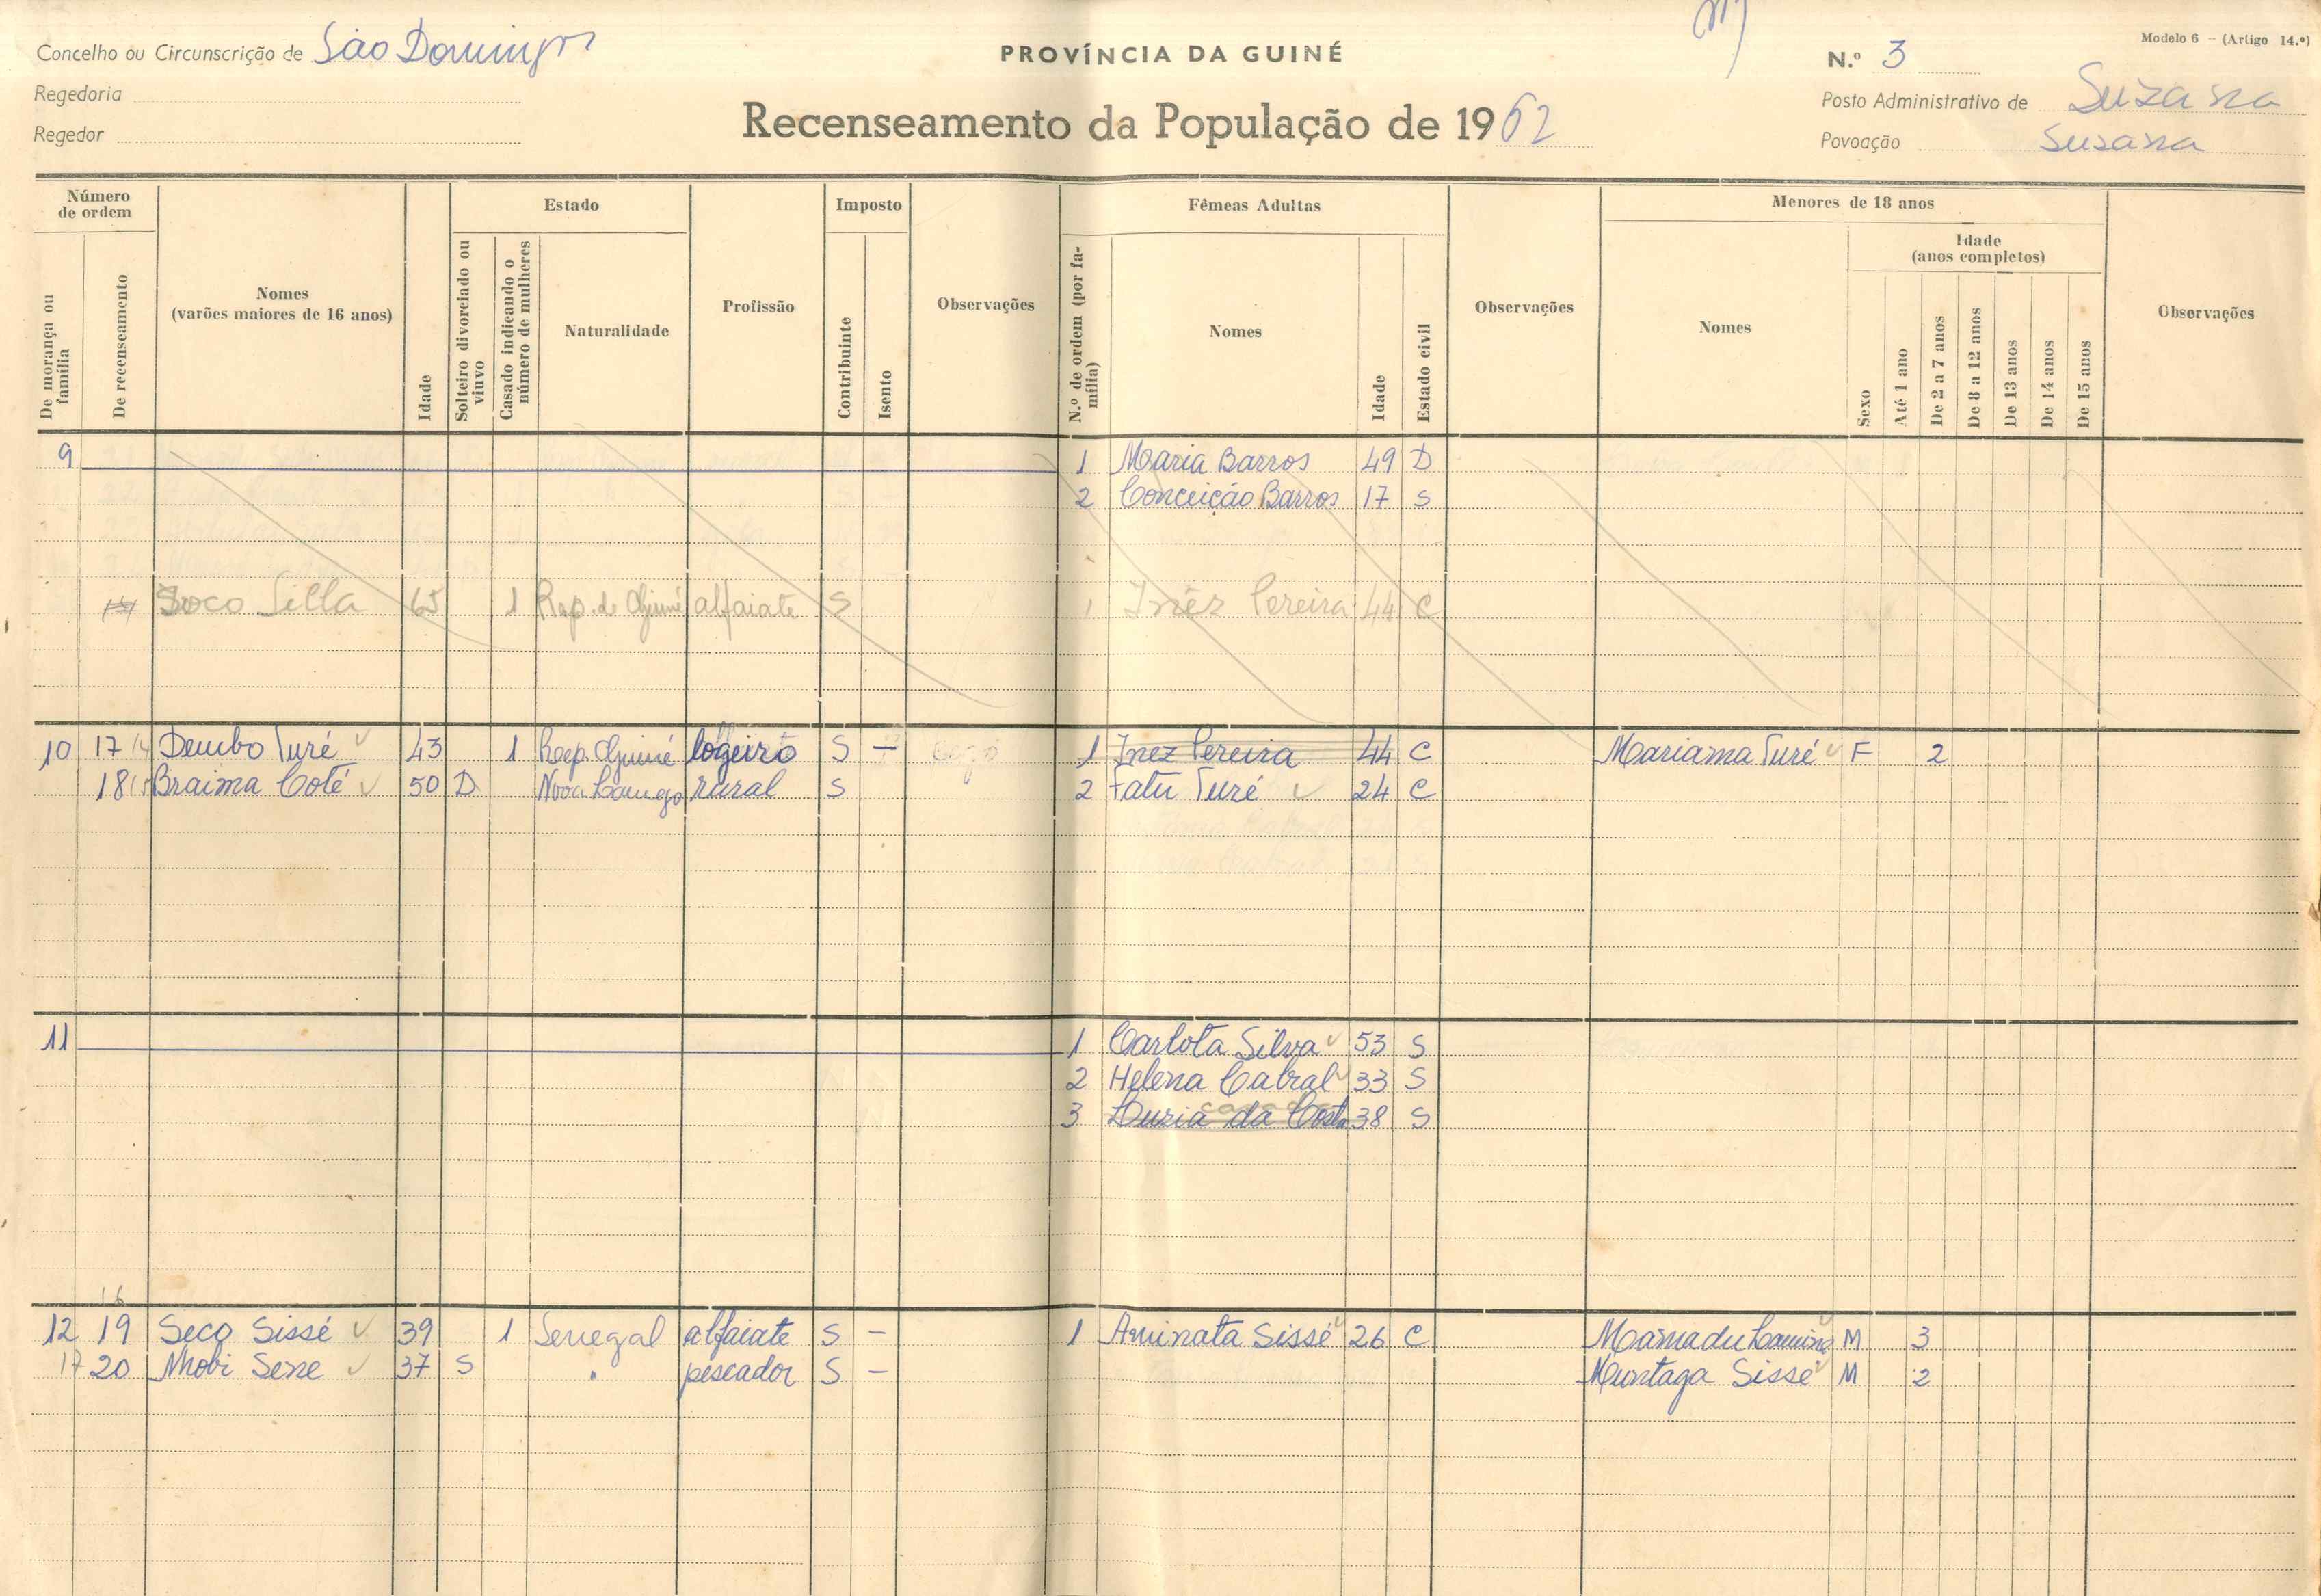 Concelho ou Circunscrição de São Domingos
PROVÍNCIA DA GUINÉ
N.º 3
Modelo 6 - (Artigo 14.º)
Regedoria
Regedor
Recenseamento da População de 1962
Posto Administrativo de Suzana
Povoação Susana
Número de ordem
De morança ou família
De recenseamento
Nomes (varões maiores de 16 anos)
Idade
Estado
Solteiro divorciado ou viuvo
Casado indicando o número de mulheres
Naturalidade
Profissão
Imposto
Contribuinte
Isento
Observações
Fêmeas Adultas
N.º de ordem (por família)
Nomes
Idade
Estado civil
Observações
Menores de 18 anos
Nomes
Sexo
Idade (anos completos)
Até 1 ano
De 2 a 7 anos
De 8 a 12 anos
De 13 anos
De 14 anos
De 15 anos
Observações
9 1 Maria Barros 49 D
2 Conceição Barros 17 S
Soco Silla 65 1 Rep. de Guiné alfaiate S 1 Inêz Pereira 44 C
10 17 14 Dembo Turé 43 1 Rep. Guiné logeiro S - 1 Inez Pereira 44 C Mariama Turé F 2
18 15 Braima Coté 50 D Nova Lamego rural S 2 Fatu Turé 24 C
11 1 Carlota Silva 53 S
2 Helena Cabral 33 S
3 Luzia da Costa 38 S
16
12 19 Seco Sissé 39 1 Senegal alfaiate S - 1 Aminata Sissé 26 C Mamadu Lamine M 3
17 20 Nhobi Sene 37 S " pescador S - Muntaga Sissé M 2